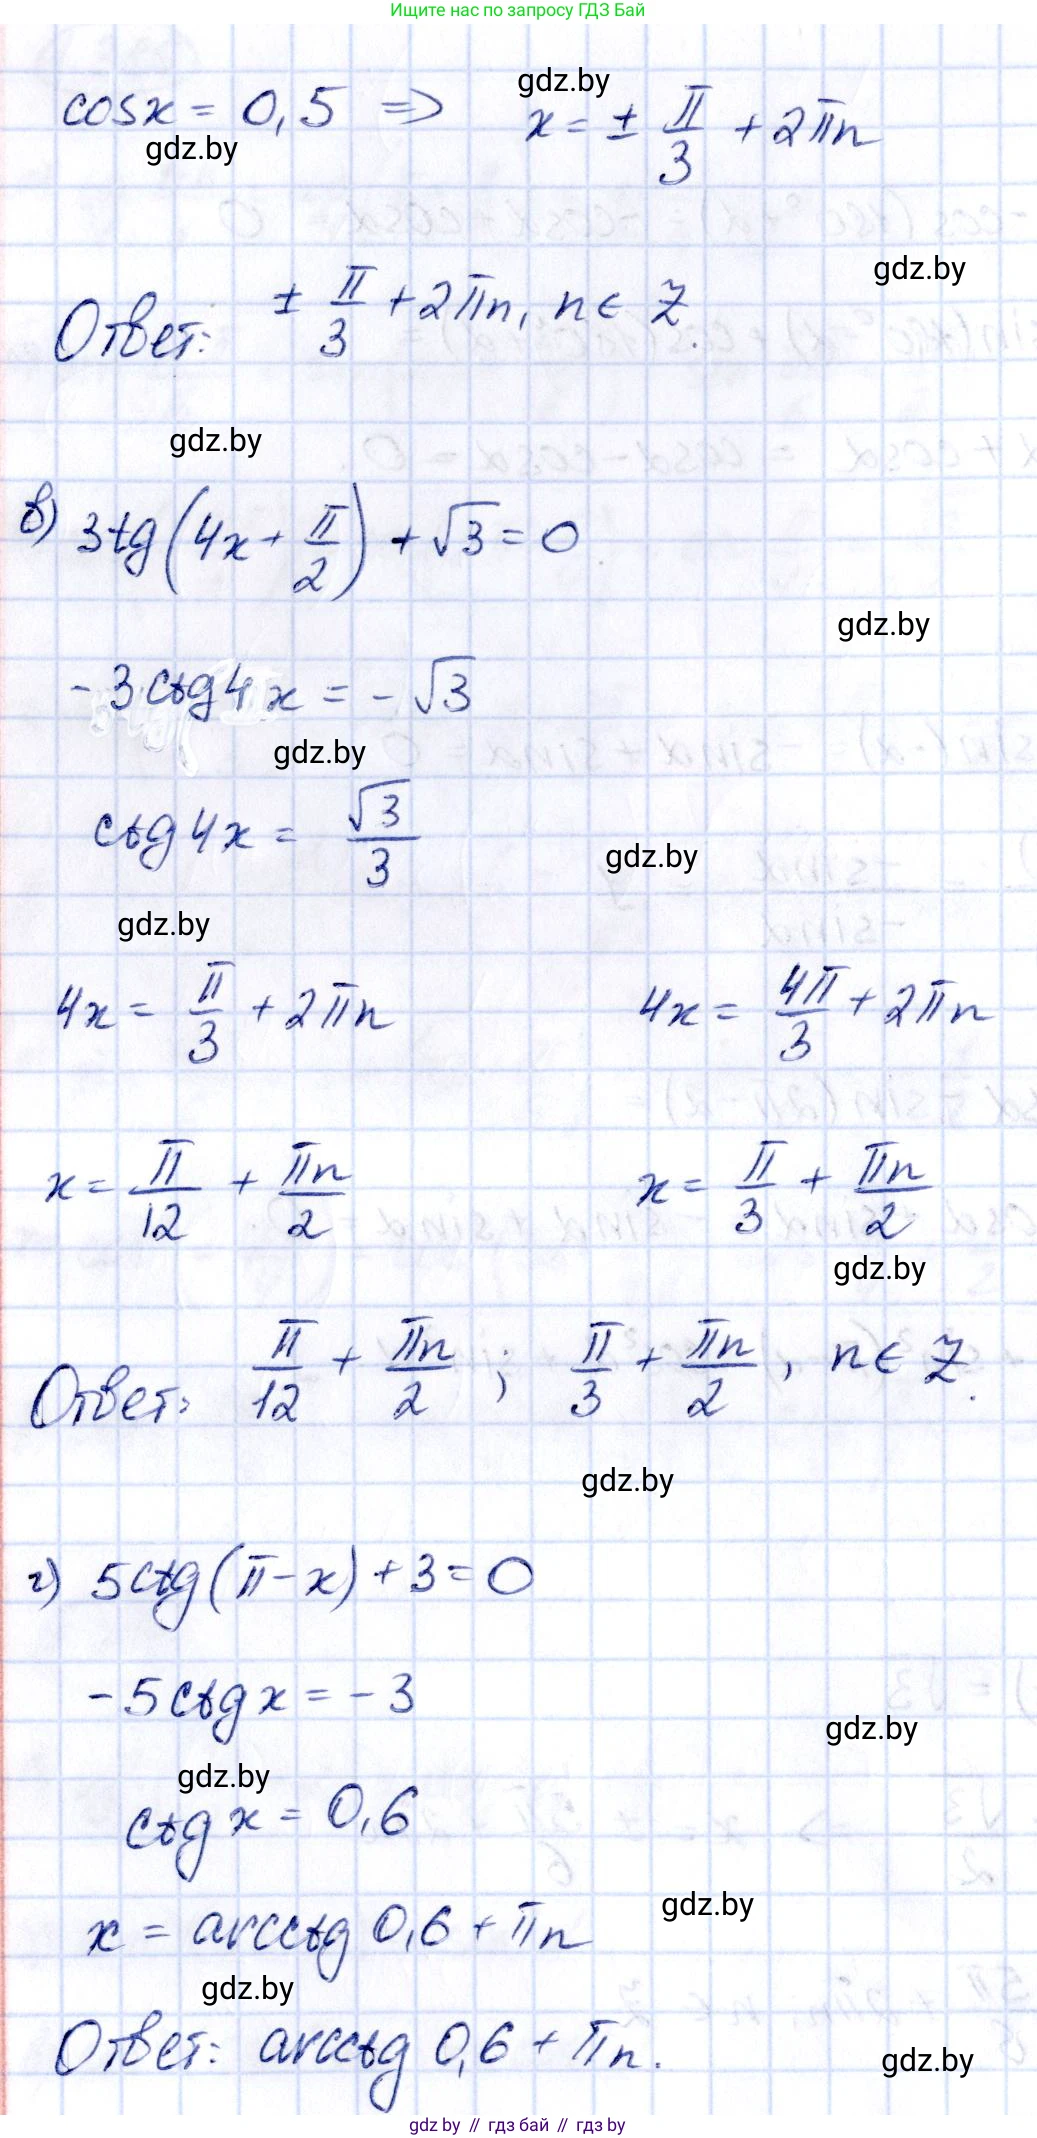 Ищите нас по запросу ГДЗ Бай
gdz.by
cosx = 0,5 => x = ± π/3 + 2πn
gdz.by
gdz.by
Ответ: ± π/3 + 2πn, n ∈ Z.
gdz.by
в) 3tg(4x + π/2) + √3 = 0
gdz.by
-3ctg4x = -√3
gdz.by
ctg4x = √3/3
gdz.by
gdz.by
4x = π/3 + 2πn 4x = 4π/3 + 2πn
x = π/12 + πn/2 x = π/3 + πn/2
gdz.by
Ответ: π/12 + πn/2 ; π/3 + πn/2, n ∈ Z.
gdz.by
г) 5ctg(π - x) + 3 = 0
-5ctgx = -3
gdz.by
gdz.by
ctgx = 0,6
gdz.by
x = arcctg 0,6 + πn
gdz.by
Ответ: arcctg 0,6 + πn.
gdz.by
gdz.by // гдз бай // гдз by